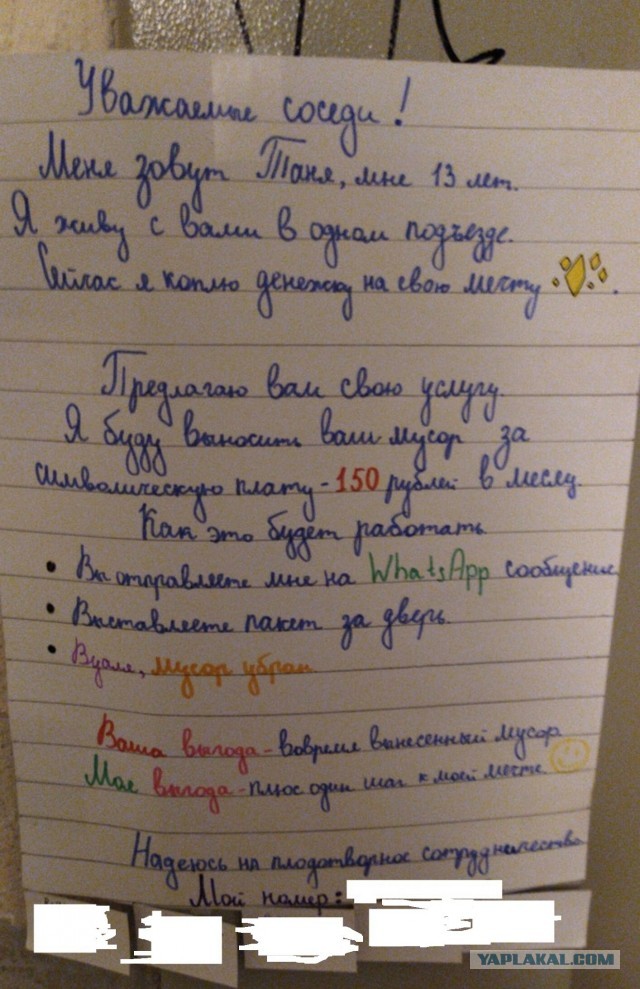 Уважаемые соседи!
Меня зовут Таня, мне 13 лет.
Я живу с вами в одном подъезде.
Сейчас я коплю денежку на свою мечту.
Предлагаю вам свою услугу.
Я буду выносить ваш мусор за
символическую плату - 150 рублей в месяц.
Как это будет работать
• Вы отправляете мне на WhatsApp сообщение
• Выставляете пакет за дверь.
• Вуаля, мусор убран
Ваша выгода - вовремя вынесенный мусор
Моя выгода - плюс один шаг к моей мечте
Надеюсь на плодотворное сотрудничество
Мой номер:
YAPLAKAL.COM